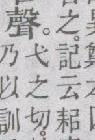 之。記云耜
聲。
弋之切。
乃以訓